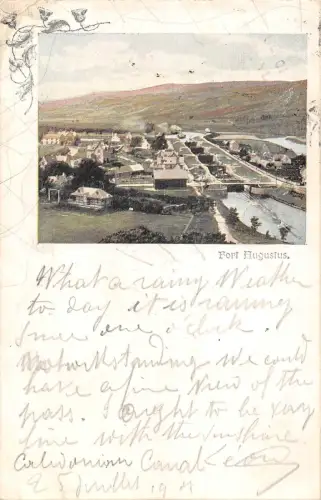 Fort Augustus.
What a rainy Weather
to day it is raining
since one o'clock.
Notwithstanding we could
have a fine view of the
pass. I ought to be very
fine with the sunshine.
Caledonian Canal
5 Juillet 19